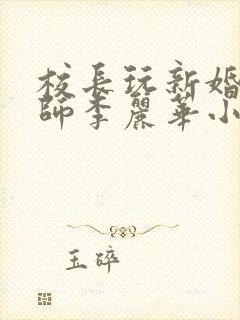 校長玩新婚
師李麗華小
玉碎